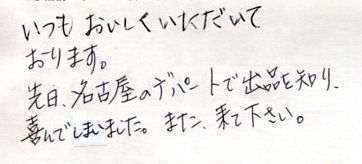 いつもおいしくいただいて
おります。
先日、名古屋のデパートで出品を知り、
喜んでしまいました。また、来て下さい。